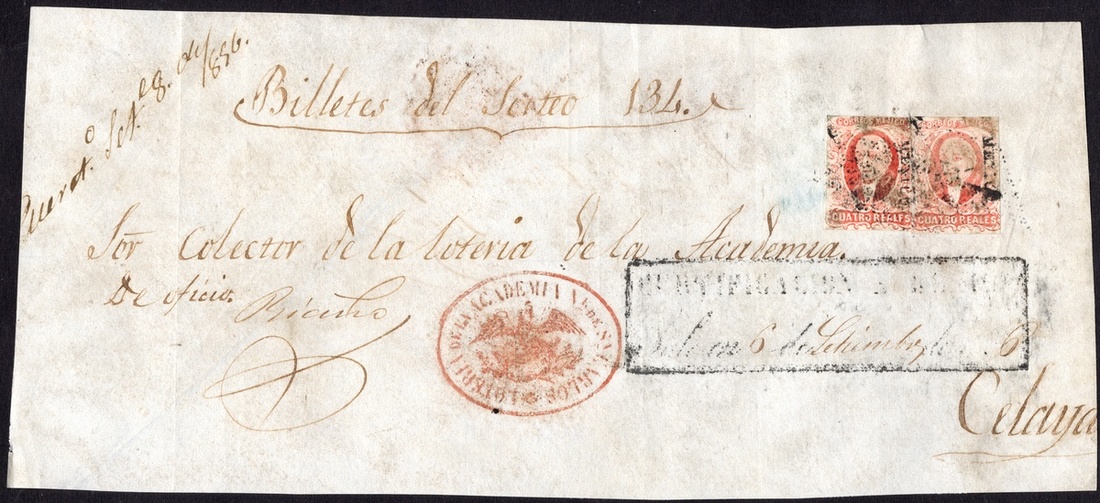 Set. 8. de 1856.
Billetes del Sorteo 134.
CORREOS MEJICO
CUATRO REALES
CORREOS MEJICO
CUATRO REALES
Sor Colector de la loteria de la Academia.
De oficio.
LOTERIA DE LA ACADEMIA NL. DE SN. CARLOS
CERTIFICACION
6 de Setiembre de
Celaya